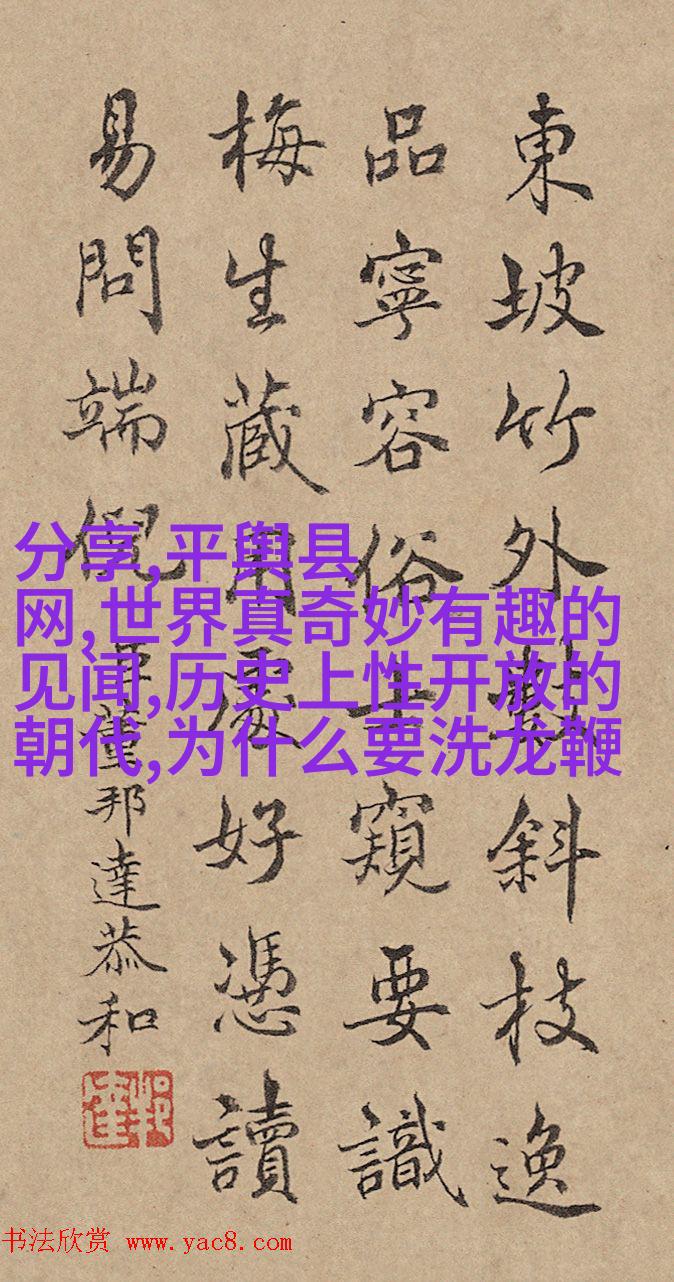 東坡竹外斜枝逸
品寧容俗士窺要識
梅生藏用處好憑讀
易問端倪
臣董邦達恭和
分享,平舆县
网,世界真奇妙有趣的
见闻,历史上性开放的
朝代,为什么要洗龙鞭
书法欣赏 www.yac8.com